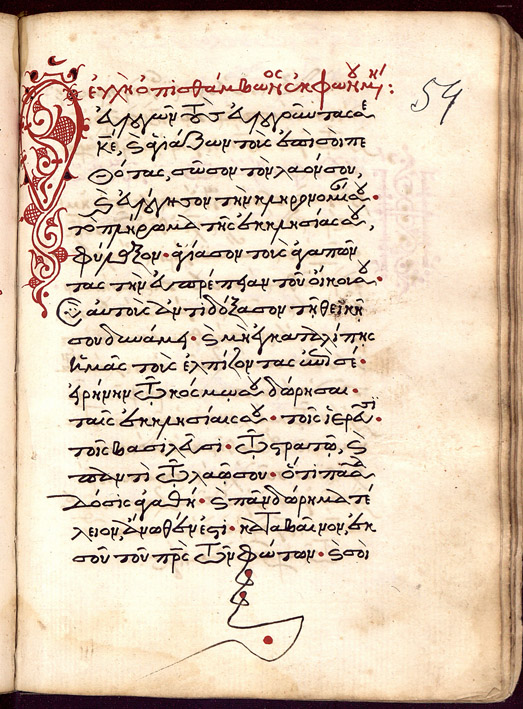 εὐχὴ ὀπισθάμβωνος ἐκφώνησις:
54
Ὁ εὐλογῶν τοὺς εὐλογοῦντάς σε
κε, ϗ ἁγιάζων τοὺς ἐπὶ σοὶ πε
ποιθότας, σῶσον τὸν λαόν σου,
ϗ εὐλόγησον τὴν κληρονομίαν σου·
τὸ πλήρωμα τῆς ἐκκλησίας σου,
φύλαξον· ἁγίασον τοὺς ἀγαπῶν
τας τὴν εὐπρέπειαν τοῦ οἴκου σου·
Σὺ αὐτοὺς ἀντιδόξασον τῇ θεϊκῇ
σου δυνάμει· ϗ μὴ ἐγκαταλίπῃς
ἡμᾶς τοὺς ἐλπίζοντας ἐπὶ σέ·
εἰρήνην τῷ κόσμω σου δώρησαι·
ταῖς ἐκκλησίαις σου· τοῖς ἱερεῦσι·
τοῖς βασιλεῦσι· τῷ στρατῷ, ϗ
παντὶ τῷ λαῷ σου· ὅτι πᾶσα
δόσις ἀγαθὴ· ϗ πᾶν δώρημα τέ
λειον, ἄνωθέν ἐστι· καταβαῖνον, ἐκ
σοῦ τοῦ πρς τῶν φώτων· ϗ σοὶ